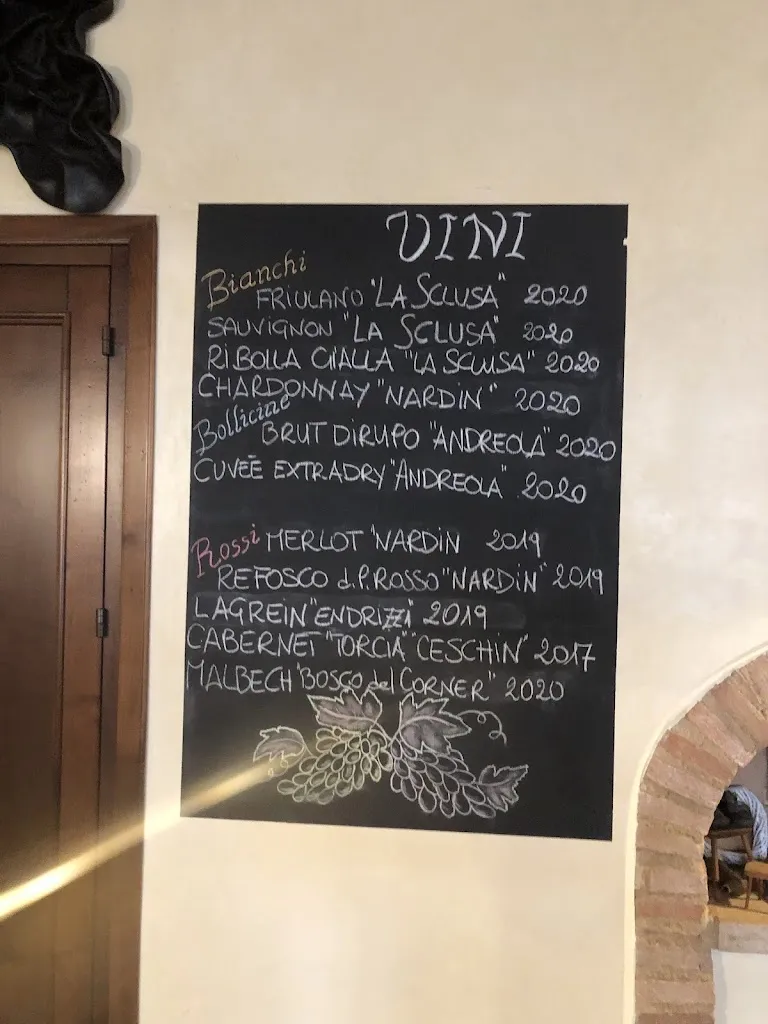 VINI
Bianchi
FRIULANO "LA SCLUSA" 2020
SAUVIGNON "LA SCLUSA" 2020
RIBOLLA GIALLA "LA SCLUSA" 2020
CHARDONNAY "NARDIN" 2020
Bollicine
BRUT DIRUPO "ANDREOLA" 2020
CUVEÉ EXTRADRY "ANDREOLA" 2020
Rossi MERLOT "NARDIN 2019
REFOSCO d.P.ROSSO "NARDIN" 2019
LAGREIN "ENDRIZZI 2019
CABERNET "TORCIA" "CESCHIN" 2017
MALBECH "BOSCO del CORNER" 2020